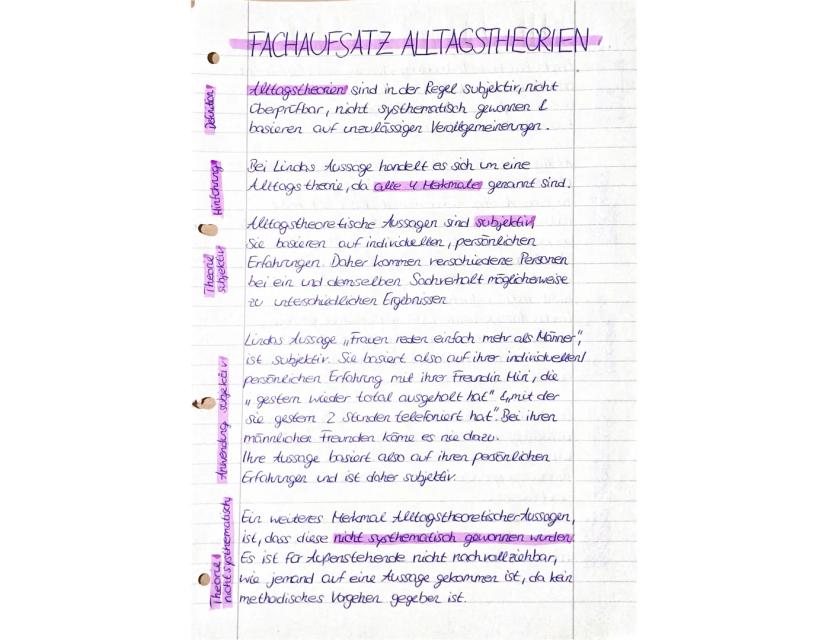 FACHAUFSATZ ALLTAGSTHEORIEN
Definition
Alltagstheorien sind in der Regel subjektiv, nicht
überprüfbar, nicht systhematisch gewonnen &
basieren auf unzulässigen Verallgemeinerungen.
Hinführung
Bei Lindas Aussage handelt es sich um eine
Alltagstheorie, da alle 4 Merkmale genannt sind.
Theorie subjektiv
Alltagstheoretische Aussagen sind subjektiv
Sie basieren auf individuellen, persönlichen
Erfahrungen. Daher kommen verschiedene Personen
bei ein und demselben Sachverhalt möglicherweise
zu unterschiedlichen Ergebnissen
Anwendung subjektiv
Lindas Aussage „Frauen reden einfach mehr als Männer",
ist subjektiv. Sie basiert also auf ihrer individuellen/
persönlichen Erfahrung mit ihrer Freundin Miri, die
„gestern wieder total ausgeholt hat" & „mit der
sie gestern 2 Stunden telefoniert hat". Bei ihren
männlichen Freunden käme es nie dazu.
Ihre Aussage basiert also auf ihren persönlichen
Erfahrungen und ist daher subjektiv.
Theorie nicht systhematisch
Ein weiteres Merkmal Alltagstheoretischer Aussagen,
ist, dass diese nicht systhematisch gewonnen wurden.
Es ist für Außenstehende nicht nachvollziehbar,
wie jemand auf eine Aussage gekommen ist, da kein
methodisches Vorgehen gegeben ist.